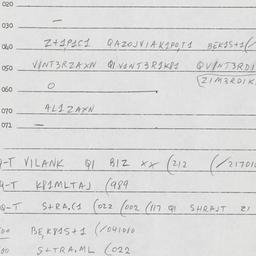 020
030 —
040 Z+1P1C1 QAZOJVIAK1P0,T1 BEK1S+1(/
050 VINT3RZAXN QIV1NT3R1KP1 QVINT3RDI
060 O (ZIM3RDIK
070 AL1ZAXN
071 —
Q-T VILANK QI BIZ xx (212 (/217010
Q-T KP1MLTAJ (989
Q-T S+RA,C1 (022 (002 (117 QI SHRAJT ZI
00 BE,KP1S+1 (/041010
00 S+TRA,ML (022